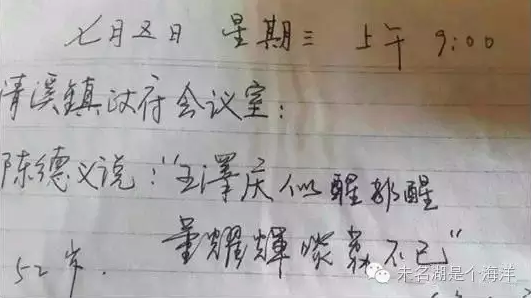 七月五日 星期三 上午 9:00
清溪鎮政府会议室:
陈德义说:"王澤庆似醒非醒
董耀輝 不已"
52岁.
未名湖是个海洋